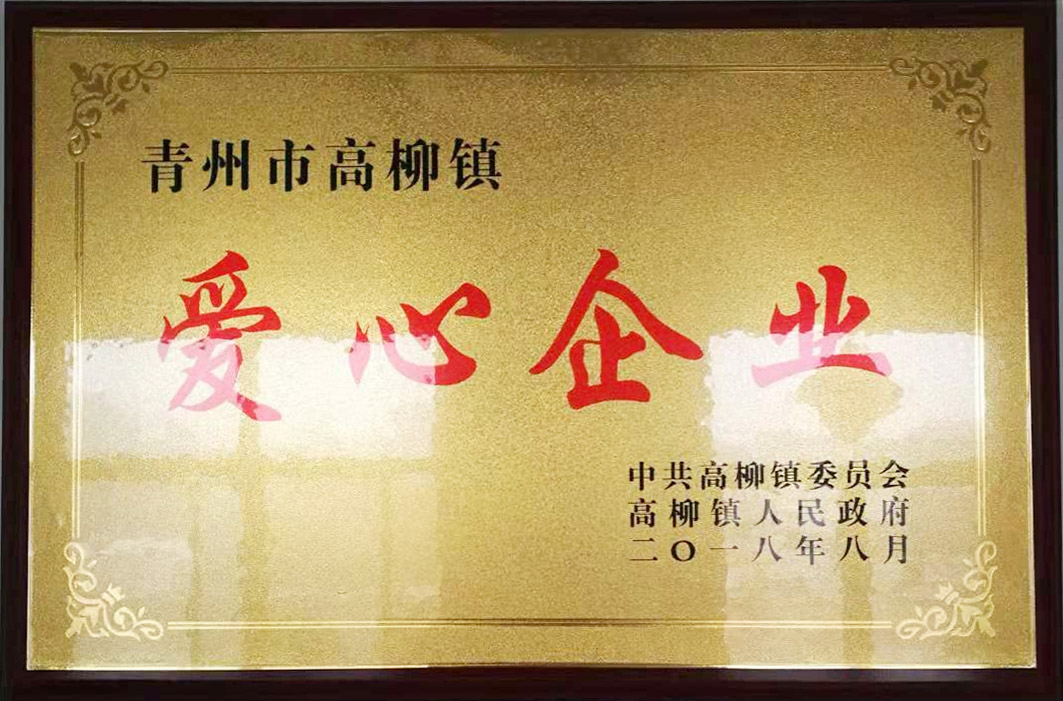 青州市高柳镇
爱心企业
中共高柳镇委员会
高柳镇人民政府
二〇一八年八月